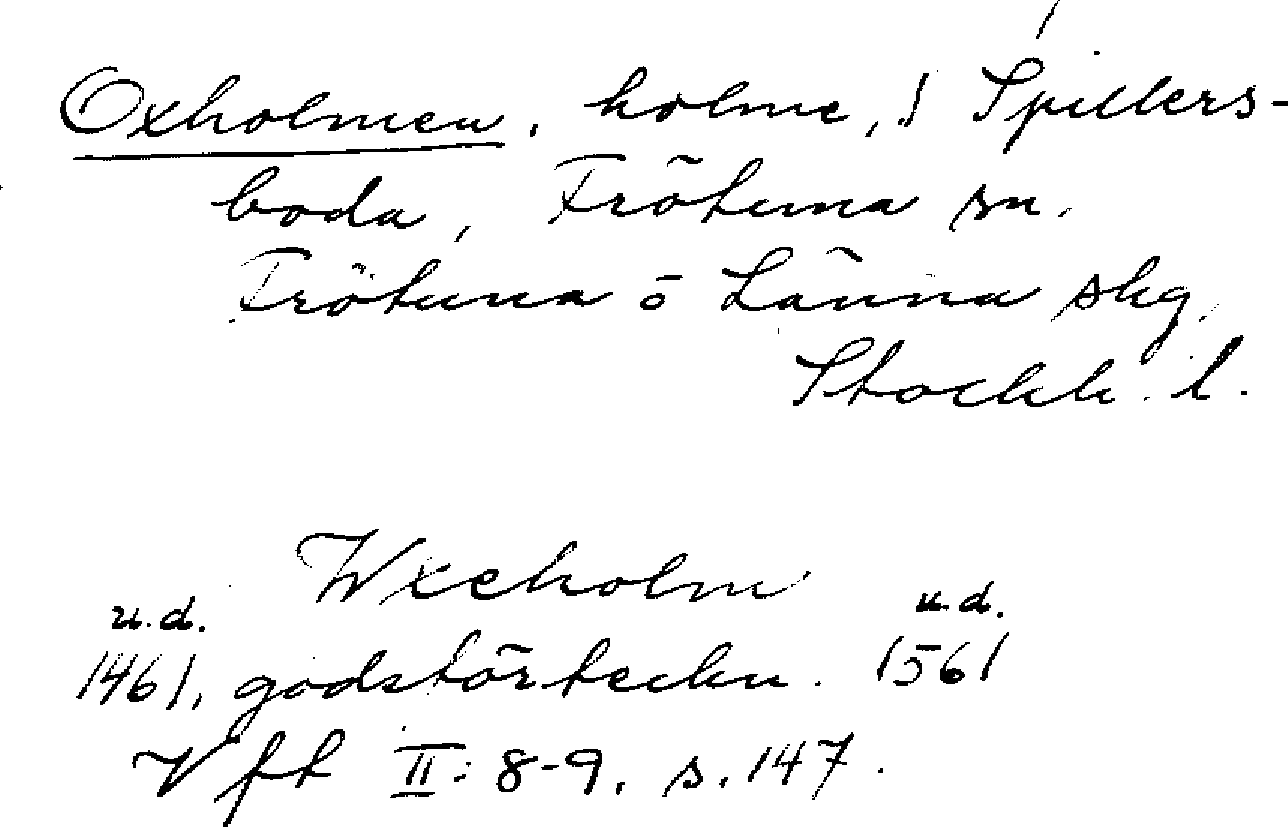 Oxholmen, holme, i Spillers-
boda, Frötuna sn.
Frötuna o Länna skg.
Stockh. l.
Wxeholm
u.d. u.d.
1461, godsförteckn. 1561
Vft II: 8-9. s. 147.